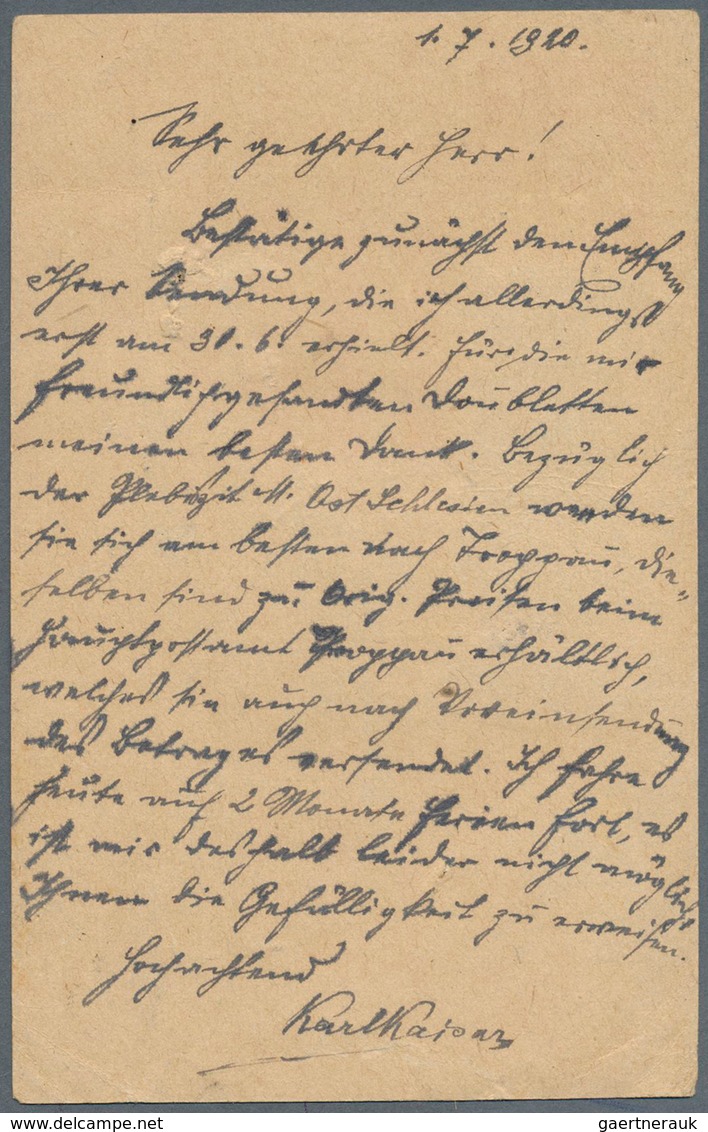 1. 7. 1920.
Sehr geehrter Herr!
Bestätige zunächst den Empfang
Ihrer Sendung, die ich allerdings
erst am 30. 6. erhielt. Für die mir
freundlichgesandten Doubletten
meinen besten Dank. Bezüglich
der Plebizit M. Ost Schlesien werden
sie sich am besten nach Troppau, die-
selben sind zu Orig. Preisen beim
Hauptpostamt Troppau erhältlich,
welches sie auch nach Voreinsendung
des Betrages versendet. Ich fahre
heute auf 2 Monate Ferien fort, es
ist mir deshalb leider nicht möglich
Ihnen die Gefälligkeit zu erweisen.
Hochachtend
Karl Kaiser
gaertnerauk